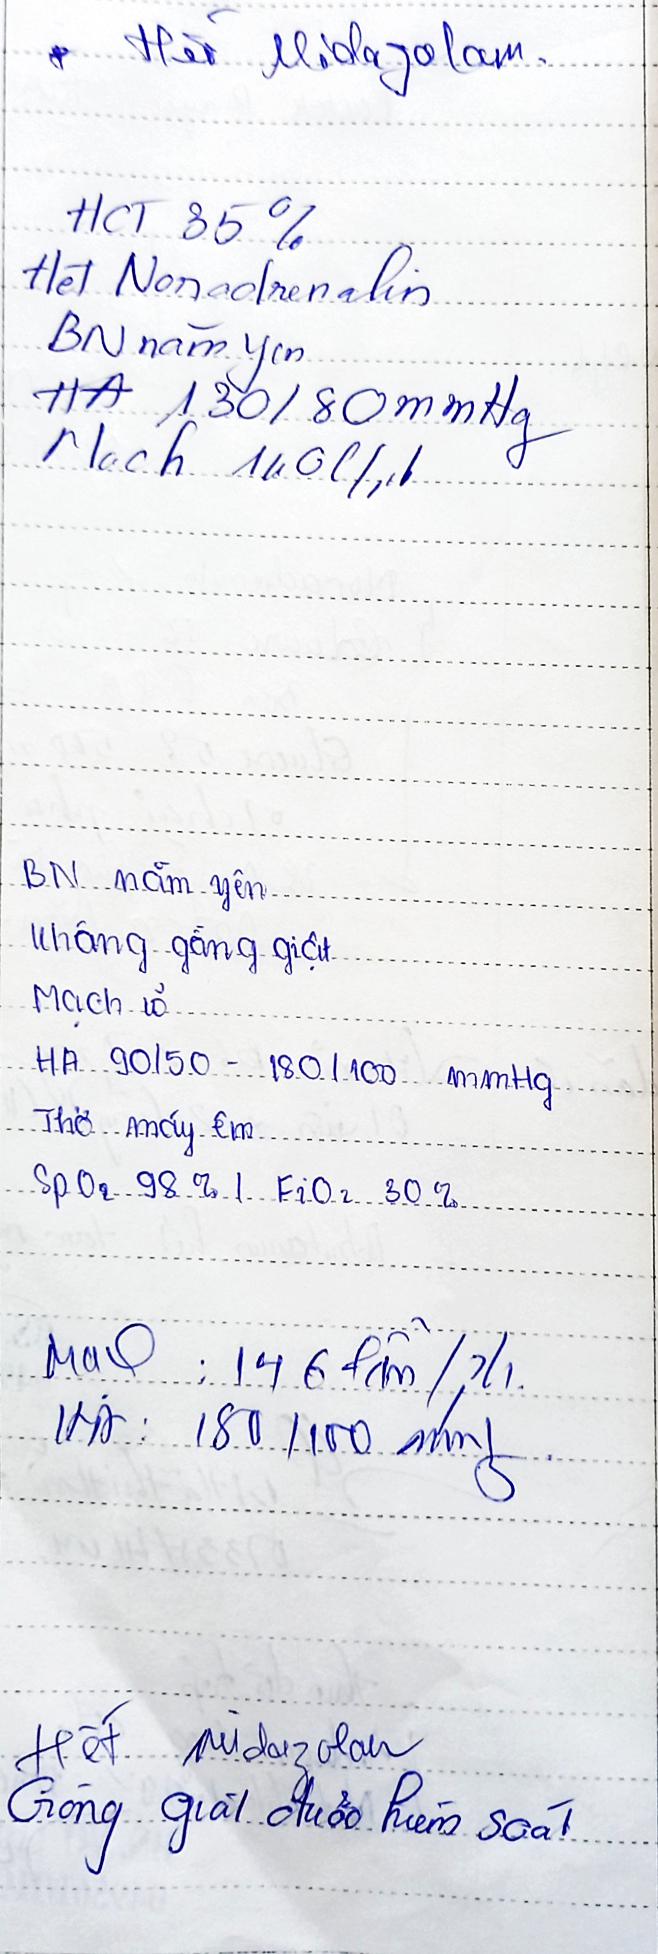 * Hết Midazolam.
HCT 35%
Hết Noradrenalin
BN nằm yên
HA 130/80mmHg
Mạch 140l/ph
BN nằm yên
không gồng giật
Mạch rõ
HA 90/50 - 180/100 mmHg
Thở máy êm
SpO₂ 98% / FiO₂ 30%
Mạch : 146 lần/ph.
HA : 180/100 mmHg.
Hết Midazolam
Gồng giật chưa kiểm soát